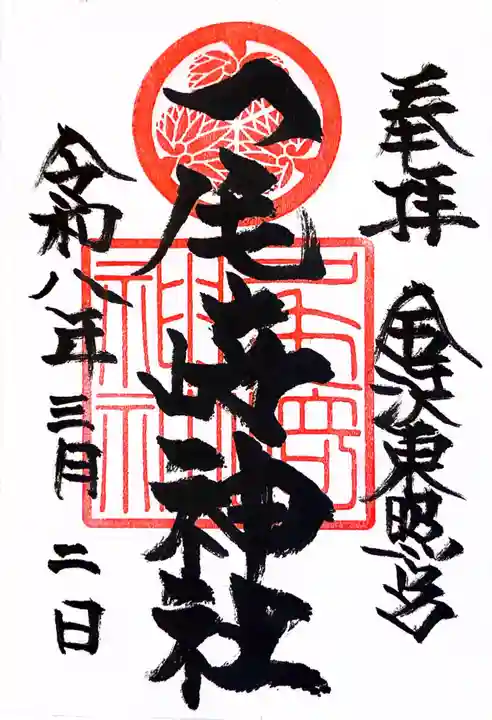 奉拝
金沢東照宮
尾崎神社
令和八年三月二日